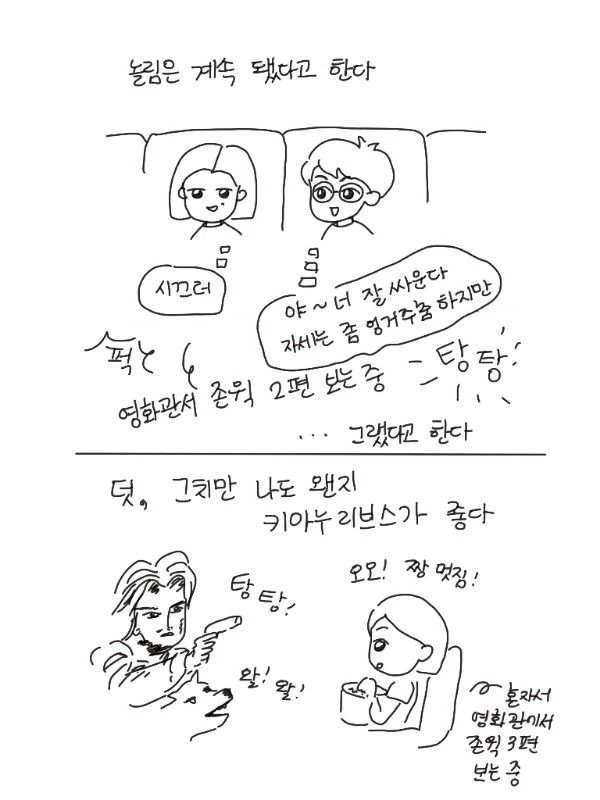 놀림은 계속 됐다고 한다
시끄러
야~ 너 잘 싸운다
자세는 좀 엉거주춤 하지만
퍽
영화관서 존윅 2편 보는 중
탕 탕!
... 그랬다고 한다
덧, 그치만 나도 왠지
키아누 리브스가 좋다
탕 탕!
오오! 짱 멋짐!
왈! 왈!
혼자서
영화관에서
존윅 3편
보는 중